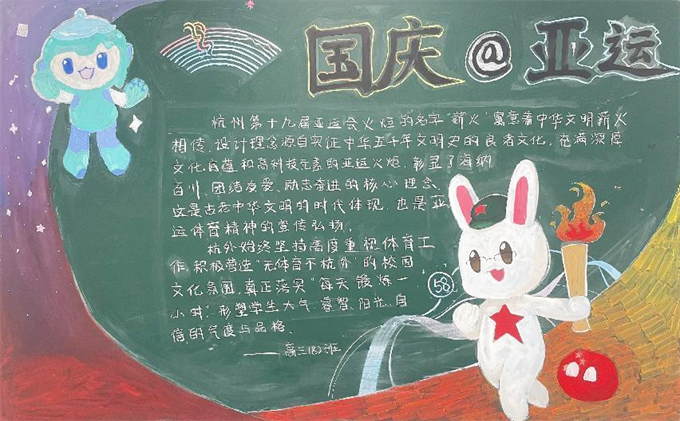 国庆@亚运
杭州第十九届亚运会火炬的名字“薪火”寓意着中华文明薪火
相传,设计理念源自实证中华五千年文明史的良渚文化,充满深厚
文化底蕴和高科技元素的亚运火炬,彰显了海纳
百川、团结友爱、励志奋进的核心理念
这是古老中华文明的时代体现,也是亚
运体育精神的宣传弘扬。
杭外始终坚持高度重视体育工
作,积极营造“无体育不杭外”的校园
文化氛围,真正落实“每天锻炼一
小时”,形塑学生大气、睿智、阳光、自
信的气度与品格。
——高三(8)班
58